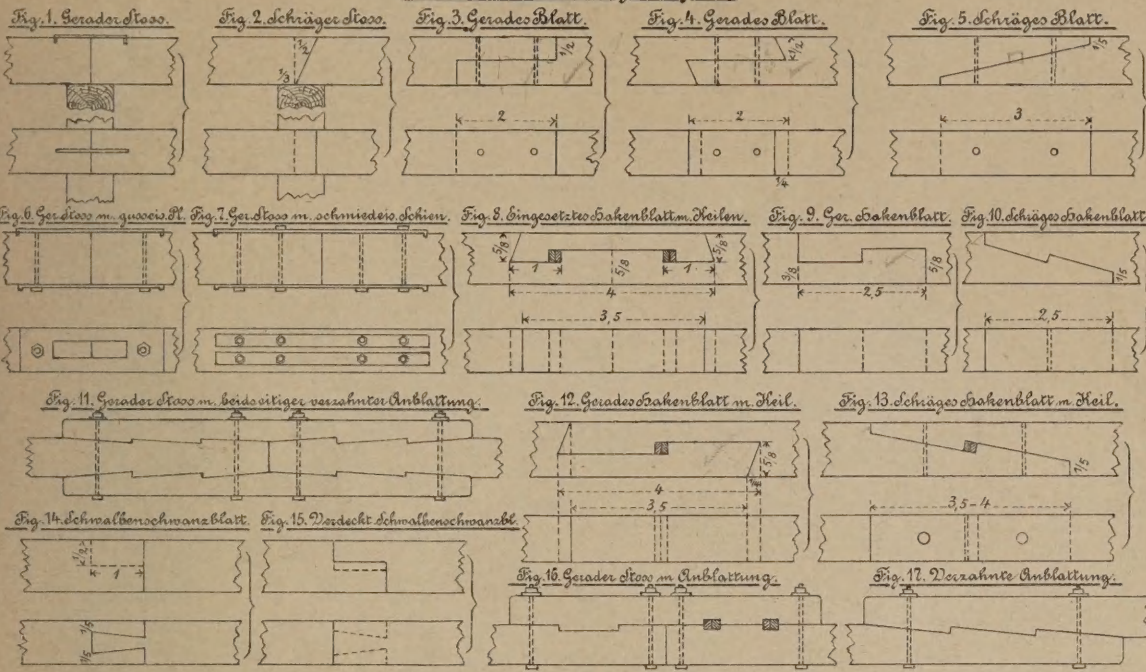 Fig. 1. Gerader Stoss.
Fig. 2. Schräger Stoss.
Fig. 3. Gerades Blatt.
Fig. 4. Gerades Blatt.
Fig. 5. Schräges Blatt.
1/2
1/3
1/2
1/2
1/5
2
2
3
1/4
Fig. 6. Ger. Stoss m. gusseis. Pl.
Fig. 7. Ger. Stoss m. schmiedeis. Schien.
Fig. 8. Eingesetztes Hakenblatt m. Keilen.
Fig. 9. Ger. Hakenblatt.
Fig. 10. Schräges Hakenblatt
5/8
5/8
1
5/8
1
4
3,5
3/8
5/8
2,5
1/5
2,5
Fig. 11. Gerader Stoss m. beidseitiger verzahnter Anblattung.
Fig. 12. Gerades Hakenblatt m. Keil.
Fig. 13. Schräges Hakenblatt m. Keil.
5/8
4
3,5
1/5
3,5-4
Fig. 14. Schwalbenschwanzblatt.
Fig. 15. Verdeckt. Schwalbenschwanzbl.
1/2
1
1/5
1/5
Fig. 16. Gerader Stoss m. Anblattung.
Fig. 17. Verzahnte Anblattung.